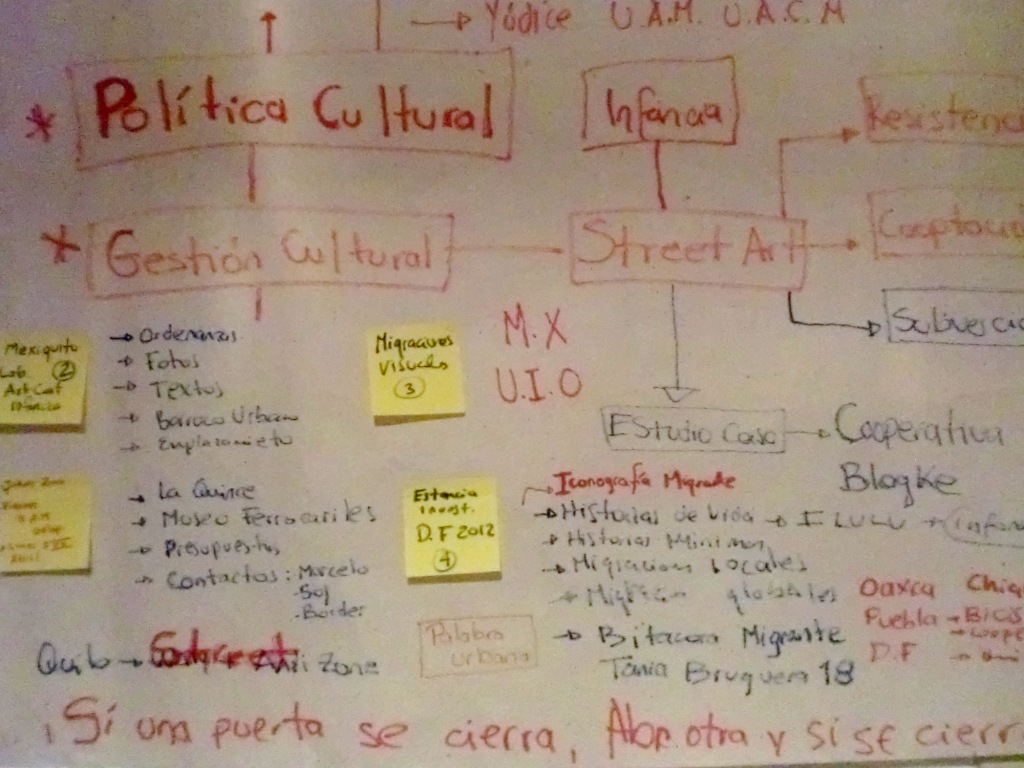 → Yúdice U.A.M. U.A.C.M
* Política Cultural
Infancia
Resistenci
* Gestión Cultural
Street Art
Cooptació
Subversió
Mexiquito
Lab. ②
→ Ordenanzas
→ Fotos
→ Textos
→ Barroco Urbano
→ Emplazamiento
Migraciones
Visuales
③
M.X
U.I.O
Estudio Caso → Cooperativa
Blogke
→ La Quince
→ Museo Ferrocariles
→ Presupuestos
→ Contactos: Marcelo
- Sol
- Border
Estancia
Invest.
D.F 2012
④
Iconografía Migrante
→ Historias de Vida →
→ Historias Minimas
→ Migracion Locales
→ globales
→ Bitacora Migrante
Tania Bruguera 18
Oaxaca Chia
Puebla → Bicis
D.F
Palabra
urbana
Quito → Zone
¡Sí una puerta se cierra, Abre otra y si se cierr